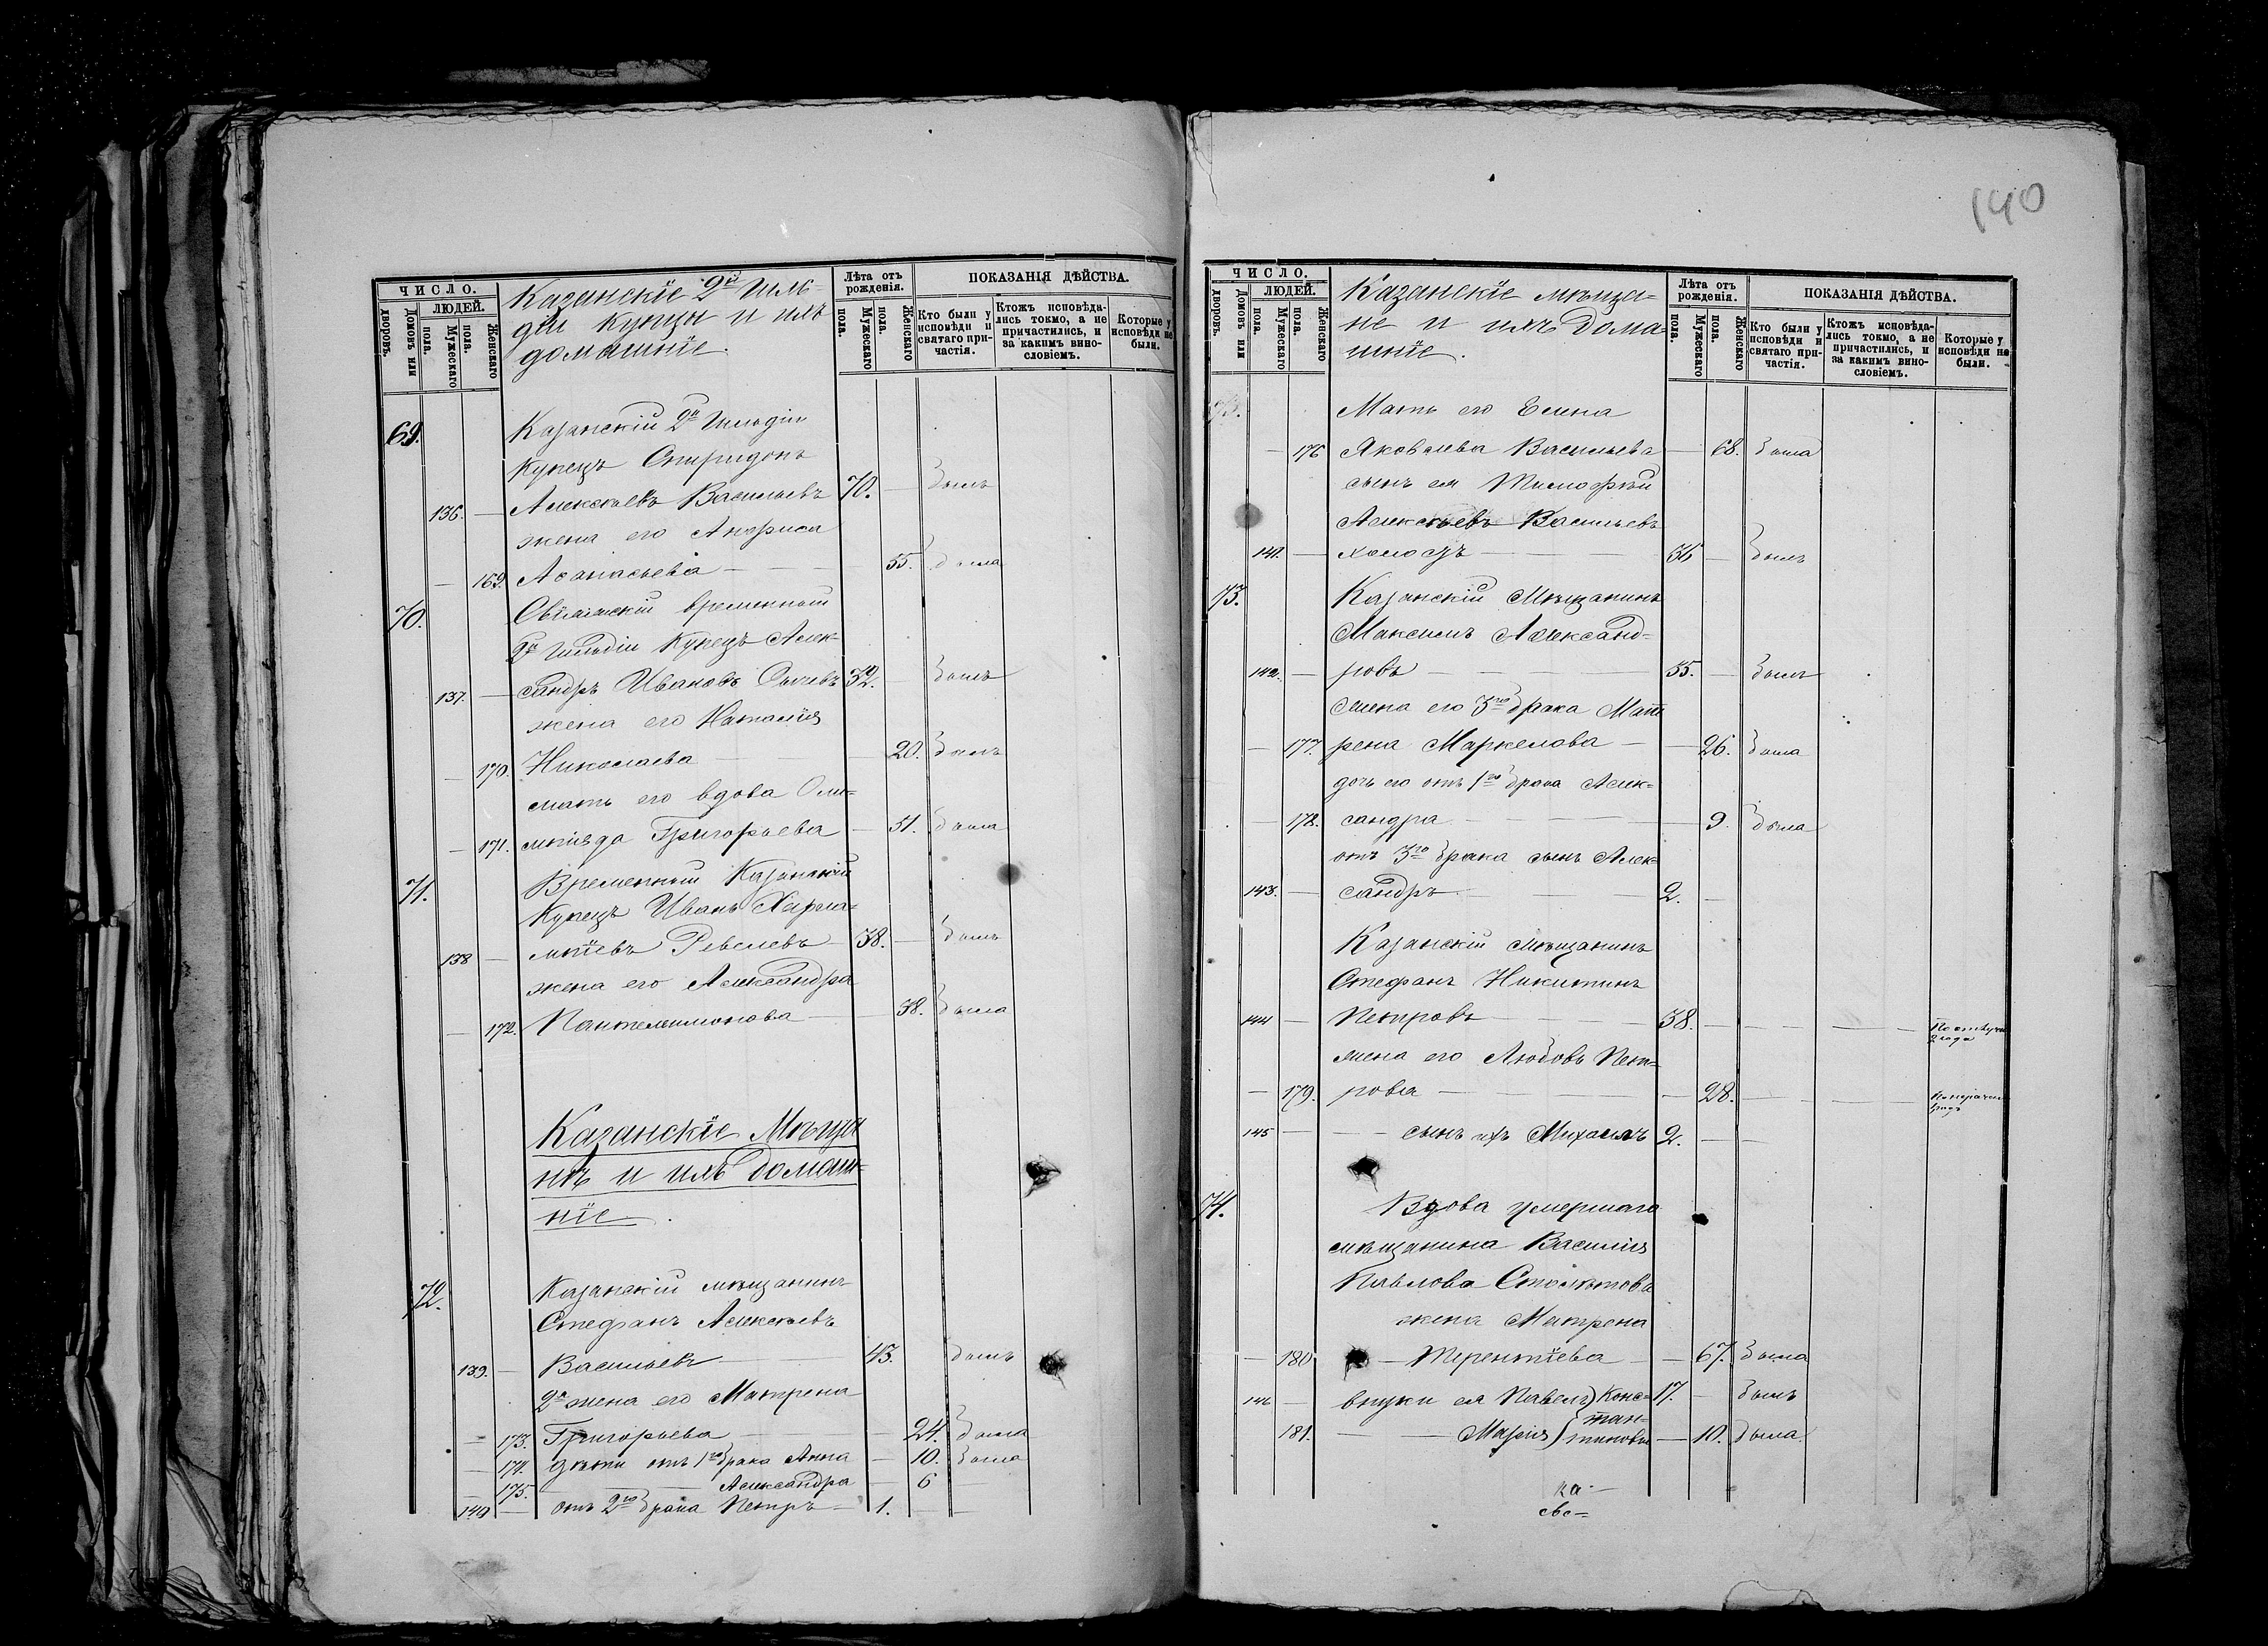 ЧИСЛО.
ЛЮДЕЙ.
Домовъ или дворовъ.
Мужескаго пола.
Женскаго пола.
Казанскіе 2й Гиль-
діи купцы и ихъ
домашніе.
Лѣта отъ рожденія.
Мужескаго пола.
Женскаго пола.
ПОКАЗАНІЯ ДѢЙСТВА.
Кто были у исповѣди и святаго при-частія.
Ктожъ исповѣда-лись токмо, а не причастились, и за какимъ вино-словіемъ.
Которые у исповѣди не были.
69. Казанскій 2й Гильдіи
Купецъ Спиридонъ
136. — Алексѣевъ Васильевъ 70. — былъ
жена его Анфиса
— 169. Аѳанасьева — 55. была
70. Свіяжскій временный
2й Гильдіи Купецъ Алек-
137. — сандръ Ивановъ Сычевъ 32. — былъ
жена его Наталія
— 170. Николаева — 20. былъ
мать его вдова Оли-
— 171. мпіяда Григорьева — 51. была
71. Временный Казанскій
Купецъ Иванъ Харла-
138 — мпіевъ Ревелевъ — 38. — былъ
жена его Александра
— 172. Пантелеимонова — 38. была
Казанскіе Мѣща
нѣ и ихъ домаш-
ніе.
72. Казанскій мѣщанинъ
Стефанъ Алексѣевъ
139. — Васильевъ 43. былъ
2я жена его Матрена
— 173. Григорьева — 24. была
— 174. дѣти отъ 1го брака Анна — 10. была
— 175. — Александра — 6
140 — отъ 2го брака Петръ — 1. — —
140
ЧИСЛО.
ЛЮДЕЙ.
Домовъ или дворовъ.
Мужескаго пола.
Женскаго пола.
Казанскіе мѣща-
не и ихъ дома-
шніе.
Лѣта отъ рожденія.
Мужескаго пола.
Женскаго пола.
ПОКАЗАНІЯ ДѢЙСТВА.
Кто были у исповѣди и святаго при-частія.
Ктожъ исповѣда-лись токмо, а не причастились, и за какимъ вино-словіемъ.
Которые у исповѣди не были.
Мать его Елена
— 176 Яковлева Васильева — 68. была
сынъ ея Тимофѣй
Алексѣевъ Васильевъ
141. — холостъ — 36 — былъ
73. Казанскій Мѣщанинъ
Максимъ Александ-
142. — ровъ — 55. — былъ
жена его 3го брака Мат
— 177. рена Маркелова — 26. была
дочь его отъ 1го брака Алек-
— 178. сандра — 9. была
отъ 3го брака сынъ Алек-
143. — сандръ — 2. —
Казанскій мѣщанинъ
Стефанъ Никитинъ
144 — Петровъ — 38. — — —
жена его Любовь Пет-
— 179. рова — 28. — —
145 — — сынъ ихъ Михаилъ 2. — —
74. Вдова умершаго
мѣщанина Василія
Павлова
жена Матрена
— 180 — Терентіева — 67. была
146 — внуки ея Павелъ) Конс- 17. — былъ
тан-
181. — Марія) тиновы — 10. была.
ка-